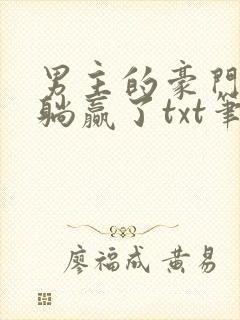 男主的豪門
躺贏了txt筆
廖福成 黃易